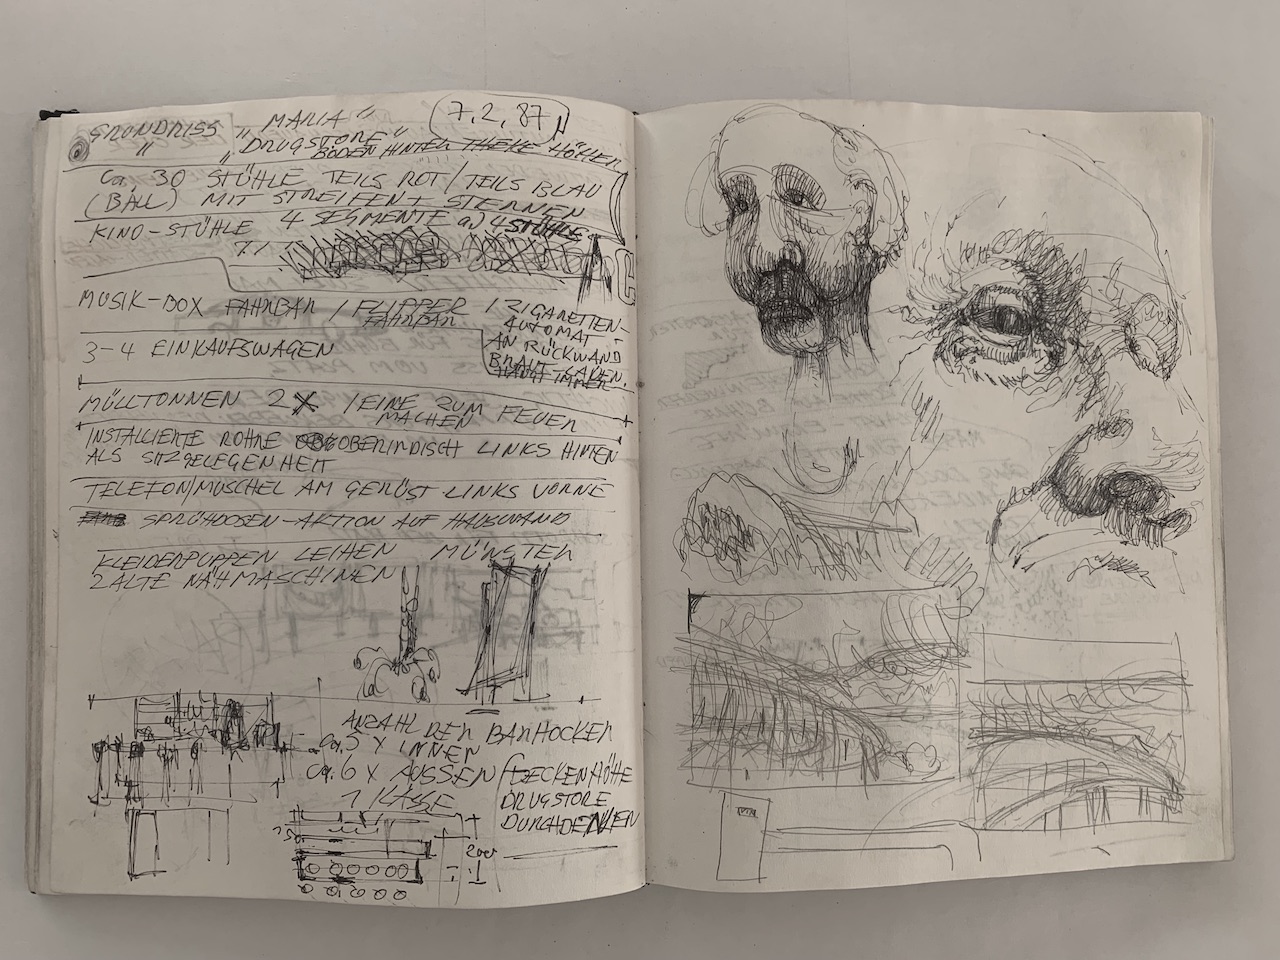 GRUNDRISS „MARIA“ 7.2.87
„ „DRUGSTORE“
BODEN HINTER THEKE HÖHER
Ca. 30 STÜHLE TEILS ROT / TEILS BLAU
(BALL) MIT STREIFEN + STERNEN
KINO-STÜHLE 4 SEGMENTE a) 4 STÜHLE
MUSIK-BOX FAHRBAR / FLIPPER FAHRBAR / ZIGARETTEN-
AUTOMAT
AN RÜCKWAND
3-4 EINKAUFSWAGEN
MÜLLTONNEN 2 X / EINE ZUM FEUER
MACHEN
INSTALLIERTE ROHRE OBERIRDISCH LINKS HINTEN
ALS SITZGELEGENHEIT
TELEFON/MUSCHEL AM GERÜST LINKS VORNE
SPRÜHDOSEN-AKTION AUF HAUSWAND
KLEIDERPUPPEN LEIHEN MÜNSTER
2 ALTE NÄHMASCHINEN
ANZAHL DER BARHOCKER
Ca. 5 X INNEN
Ca. 6 X AUSSEN
1 KASSE
DECKENHÖHE
DRUGSTORE
DURCHDENKEN